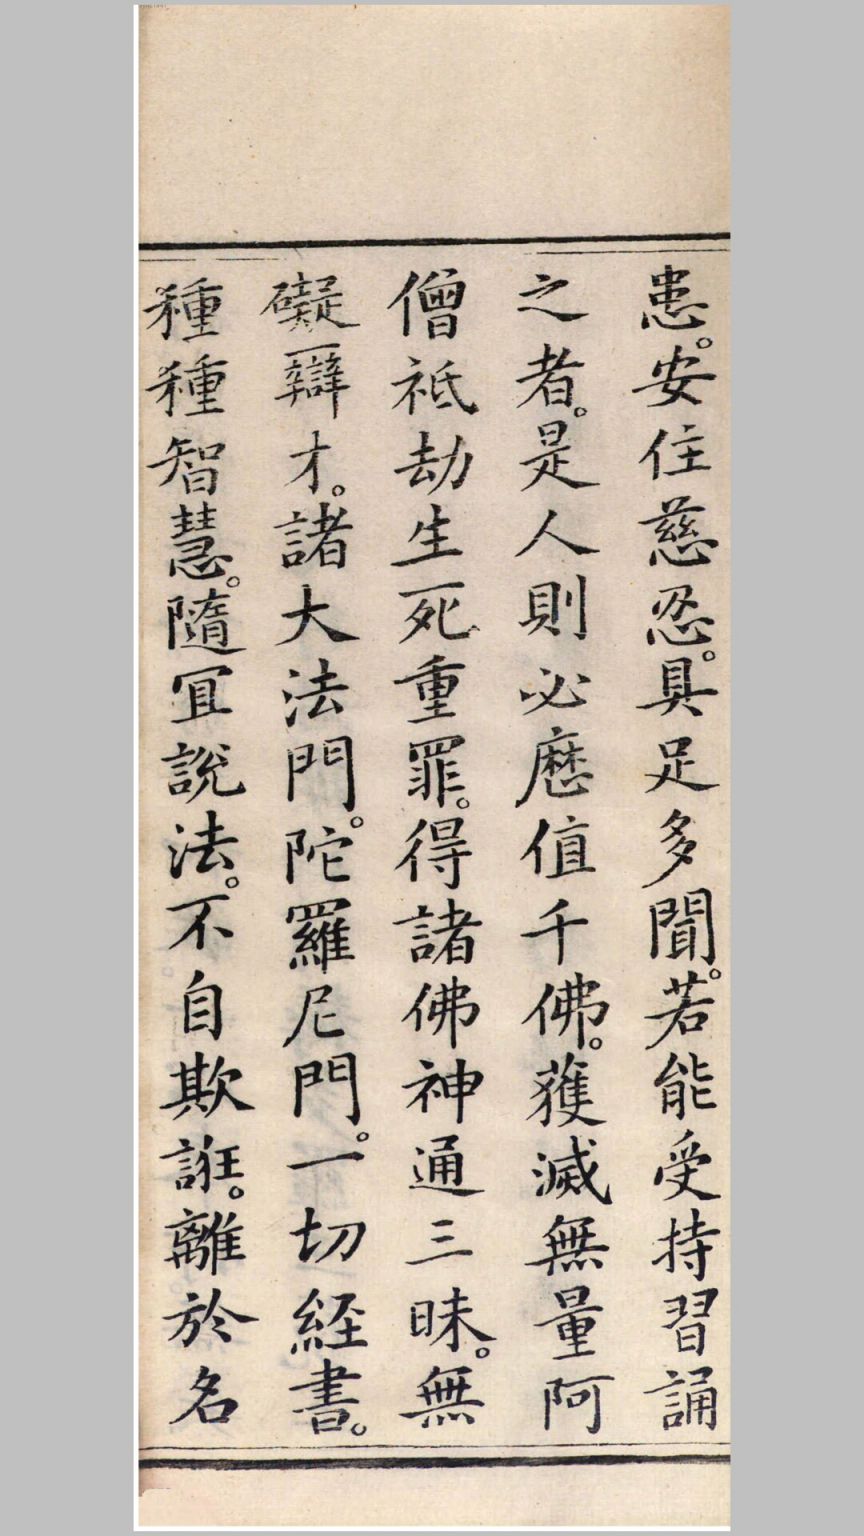 患。安住慈忍。具足多聞。若能受持習誦
之者。是人則必歷值千佛。獲滅無量阿
僧祇劫生死重罪。得諸佛神通三昧。無
礙辯才。諸大法門。陀羅尼門。一切經書。
種種智慧。隨宜說法。不自欺誑。離於名